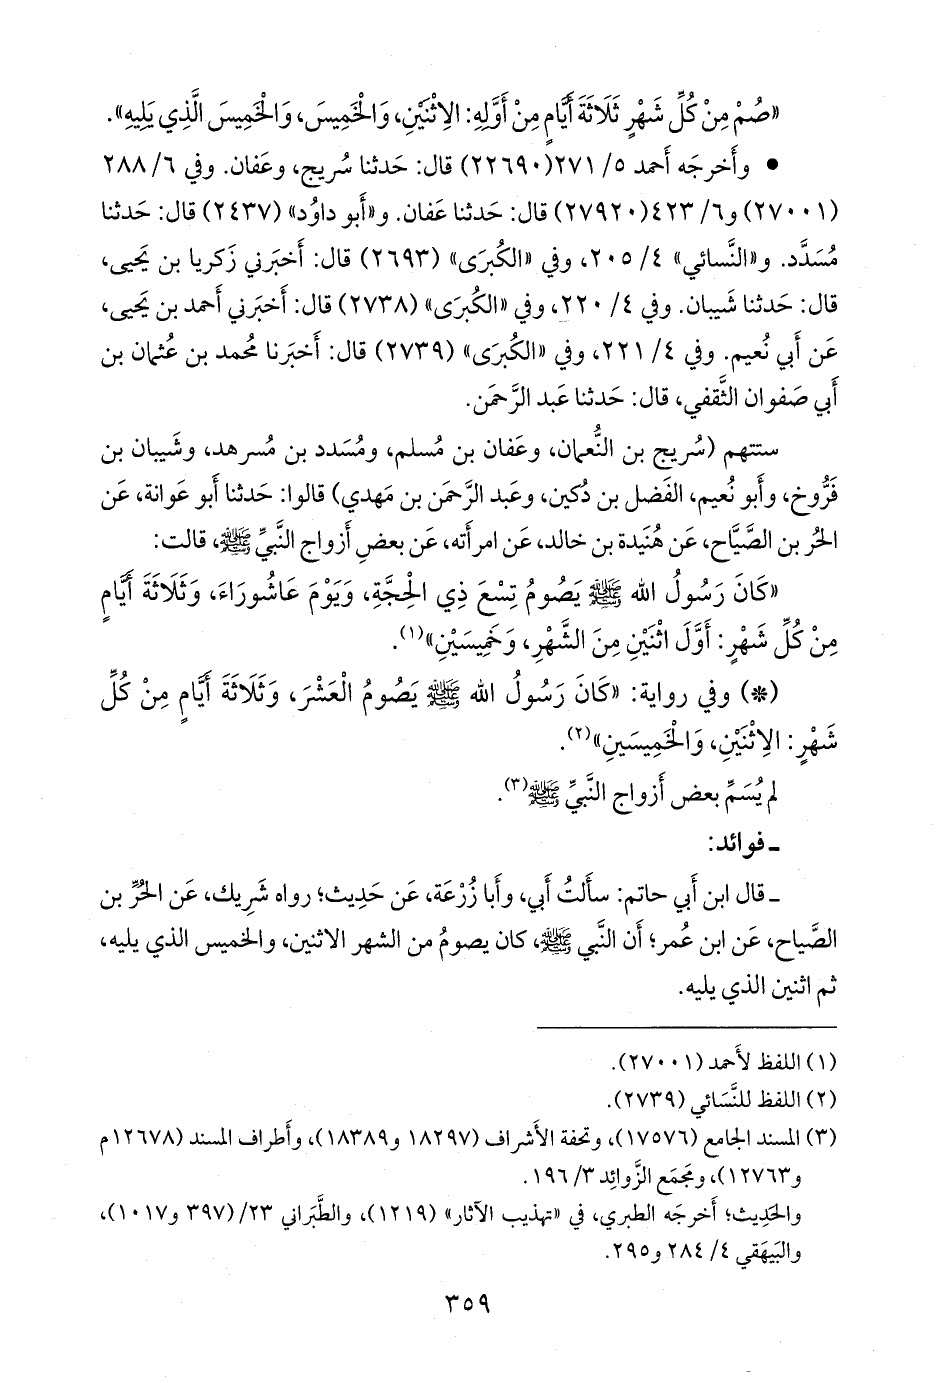 «صُمْ مِنْ كُلِّ شَهْرٍ ثَلَاثَةَ أَيَّامٍ مِنْ أَوَّلِهِ: الِاثْنَيْنِ، وَالْخَمِيسَ، وَالْخَمِيسَ الَّذِي يَلِيهِ».
• وأَخرجَه أحمد ٥/ ٢٧١(٢٢٦٩٠) قال: حَدثنا سُريج، وعَفان. وفي ٦/ ٢٨٨
(٢٧٠٠١) و٦/ ٤٢٣(٢٧٩٢٠) قال: حَدثنا عَفان. و«أَبو داوُد» (٢٤٣٧) قال: حَدثنا
مُسَدَّد. و«النَّسائي» ٤/ ٢٠٥، وفي «الكُبرَى» (٢٦٩٣) قال: أَخبَرني زَكريا بن يَحيى،
قال: حَدثنا شَيبان. وفي ٤/ ٢٢٠، وفي «الكُبرَى» (٢٧٣٨) قال: أَخبَرني أَحمد بن يَحيى،
عَن أَبي نُعيم. وفي ٤/ ٢٢١، وفي «الكُبرَى» (٢٧٣٩) قال: أَخبَرنا مُحمد بن عُثمان بن
أَبي صَفوان الثَّقفي، قال: حَدثنا عَبد الرَّحمَن.
ستتهم (سُريج بن النُّعمان، وعَفان بن مُسلم، ومُسَدد بن مُسرهد، وشَيبان بن
فَرُّوخ، وأَبو نُعيم، الفَضل بن دُكين، وعَبد الرَّحمَن بن مَهدي) قالوا: حَدثنا أَبو عَوانة، عَن
الحُر بن الصَّيَّاح، عَن هُنَيدة بن خالد، عَن امرأَته، عَن بعضِ أَزواج النَّبيِّ ﷺ، قالت:
«كَانَ رَسُولُ الله ﷺ يَصُومُ تِسْعَ ذِي الْحِجَّةِ، وَيَوْمَ عَاشُورَاءَ، وَثَلَاثَةَ أَيَّامٍ
مِنْ كُلِّ شَهْرٍ: أَوَّلَ اثْنَيْنِ مِنَ الشَّهْرِ، وَخَمِيسَيْنِ»(١).
(*) وفي رواية: «كَانَ رَسُولُ الله ﷺ يَصُومُ الْعَشْرَ، وَثَلَاثَةَ أَيَّامٍ مِنْ كُلِّ
شَهْرٍ: الِاثْنَيْنِ، وَالْخَمِيسَينِ»(٢).
لم يُسَمِّ بعض أَزواج النَّبيِّ ﷺ(٣).
ـ فوائد:
ـ قال ابن أَبي حاتم: سأَلتُ أَبي، وأَبا زُرْعَة، عَن حَدِيث؛ رواه شَرِيك، عَن الحُرِّ بن
الصَّياح، عَن ابن عُمر؛ أَن النَّبي ﷺ، كان يصومُ من الشهر الاثنين، والخميس الذي يليه،
ثم اثنين الذي يليه.
(١) اللفظ لأَحمد (٢٧٠٠١).
(٢) اللفظ للنَّسَائي (٢٧٣٩).
(٣) المسند الجامع (١٧٥٧٦)، وتحفة الأَشراف (١٨٢٩٧ و١٨٣٨٩)، وأَطراف المسند (١٢٦٧٨م
و١٢٧٦٣)، ومَجمَع الزَّوائِد ٣/ ١٩٦.
والحَدِيث؛ أَخرجَه الطبري، في «تهذيب الآثار» (١٢١٩)، والطَّبَراني ٢٣/(٣٩٧ و١٠١٧)،
والبَيهَقي ٤/ ٢٨٤ و٢٩٥.
٣٥٩